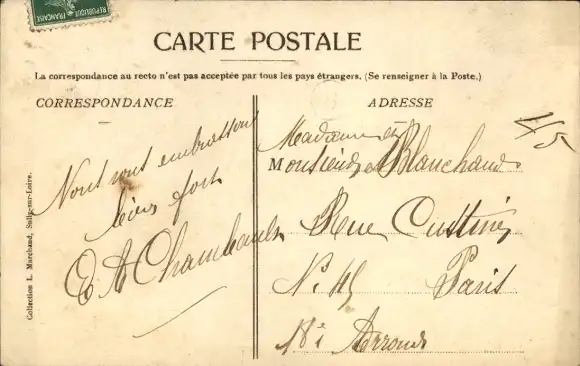 REPUBLIQUE FRANÇAISE
CARTE POSTALE
La correspondance au recto n'est pas acceptée par tous les pays étrangers. (Se renseigner à la Poste.)
CORRESPONDANCE
Nous vous embrassons
bien fort
E A Chambault
Collection L. Marchand, Sully-sur-Loire.
ADRESSE
45
Madame et
Monsieur Blanchard
Rue Custine
N. 45 Paris
18i Arrond